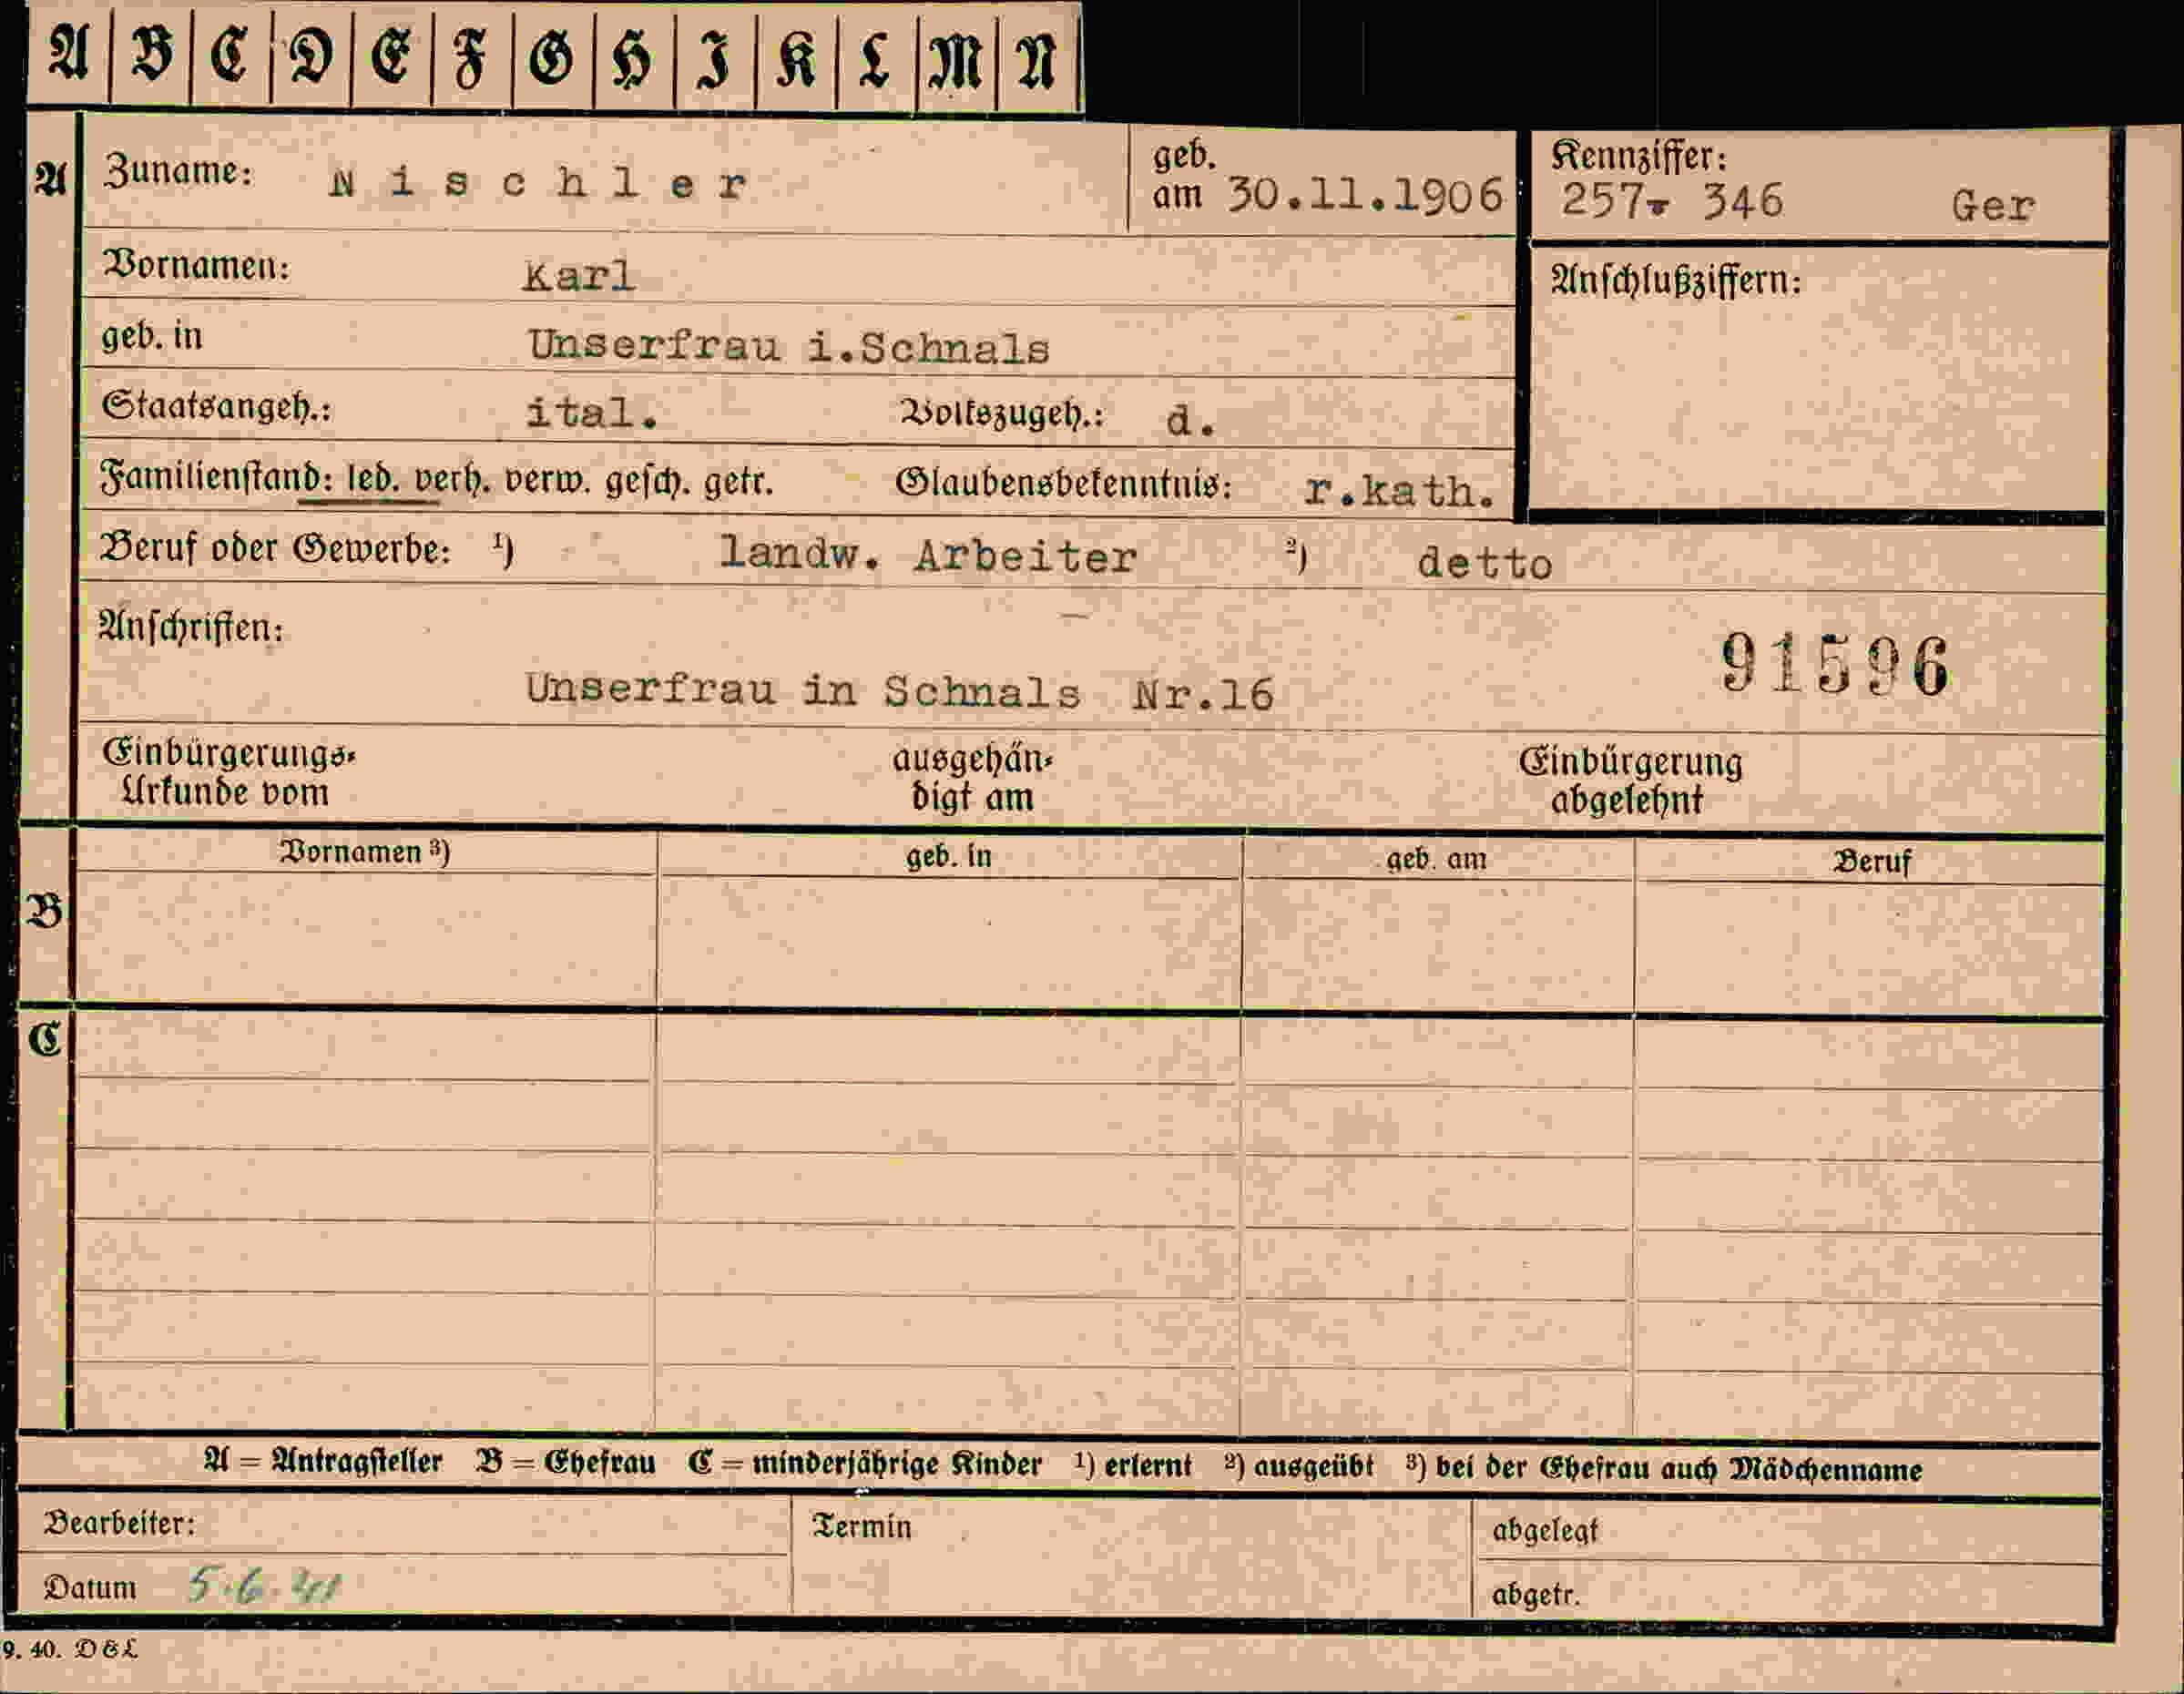 A B C D E F G H I K L M N
A Zuname: Nischler geb. am 30.11.1906 Kennziffer: 257- 346 Ger
Vornamen: Karl Anschlußziffern:
geb. in Unserfrau i.Schnals
Staatsangeh.: ital. Volkszugeh.: d.
Familienstand: led. verh. verw. gesch. getr. Glaubensbekenntnis: r.kath.
Beruf oder Gewerbe: ¹) landw. Arbeiter ²) detto
Anschriften:
91596
Unserfrau in Schnals Nr.16
Einbürgerungs- ausgehän- Einbürgerung
Urkunde vom digt am abgelehnt
Vornamen ³) geb. in geb. am Beruf
B
C
A = Antragsteller B = Ehefrau C = minderjährige Kinder ¹) erlernt ²) ausgeübt ³) bei der Ehefrau auch Mädchenname
Bearbeiter: Termin abgelegt
Datum 5.6.41 abgetr.
9. 40. D&L